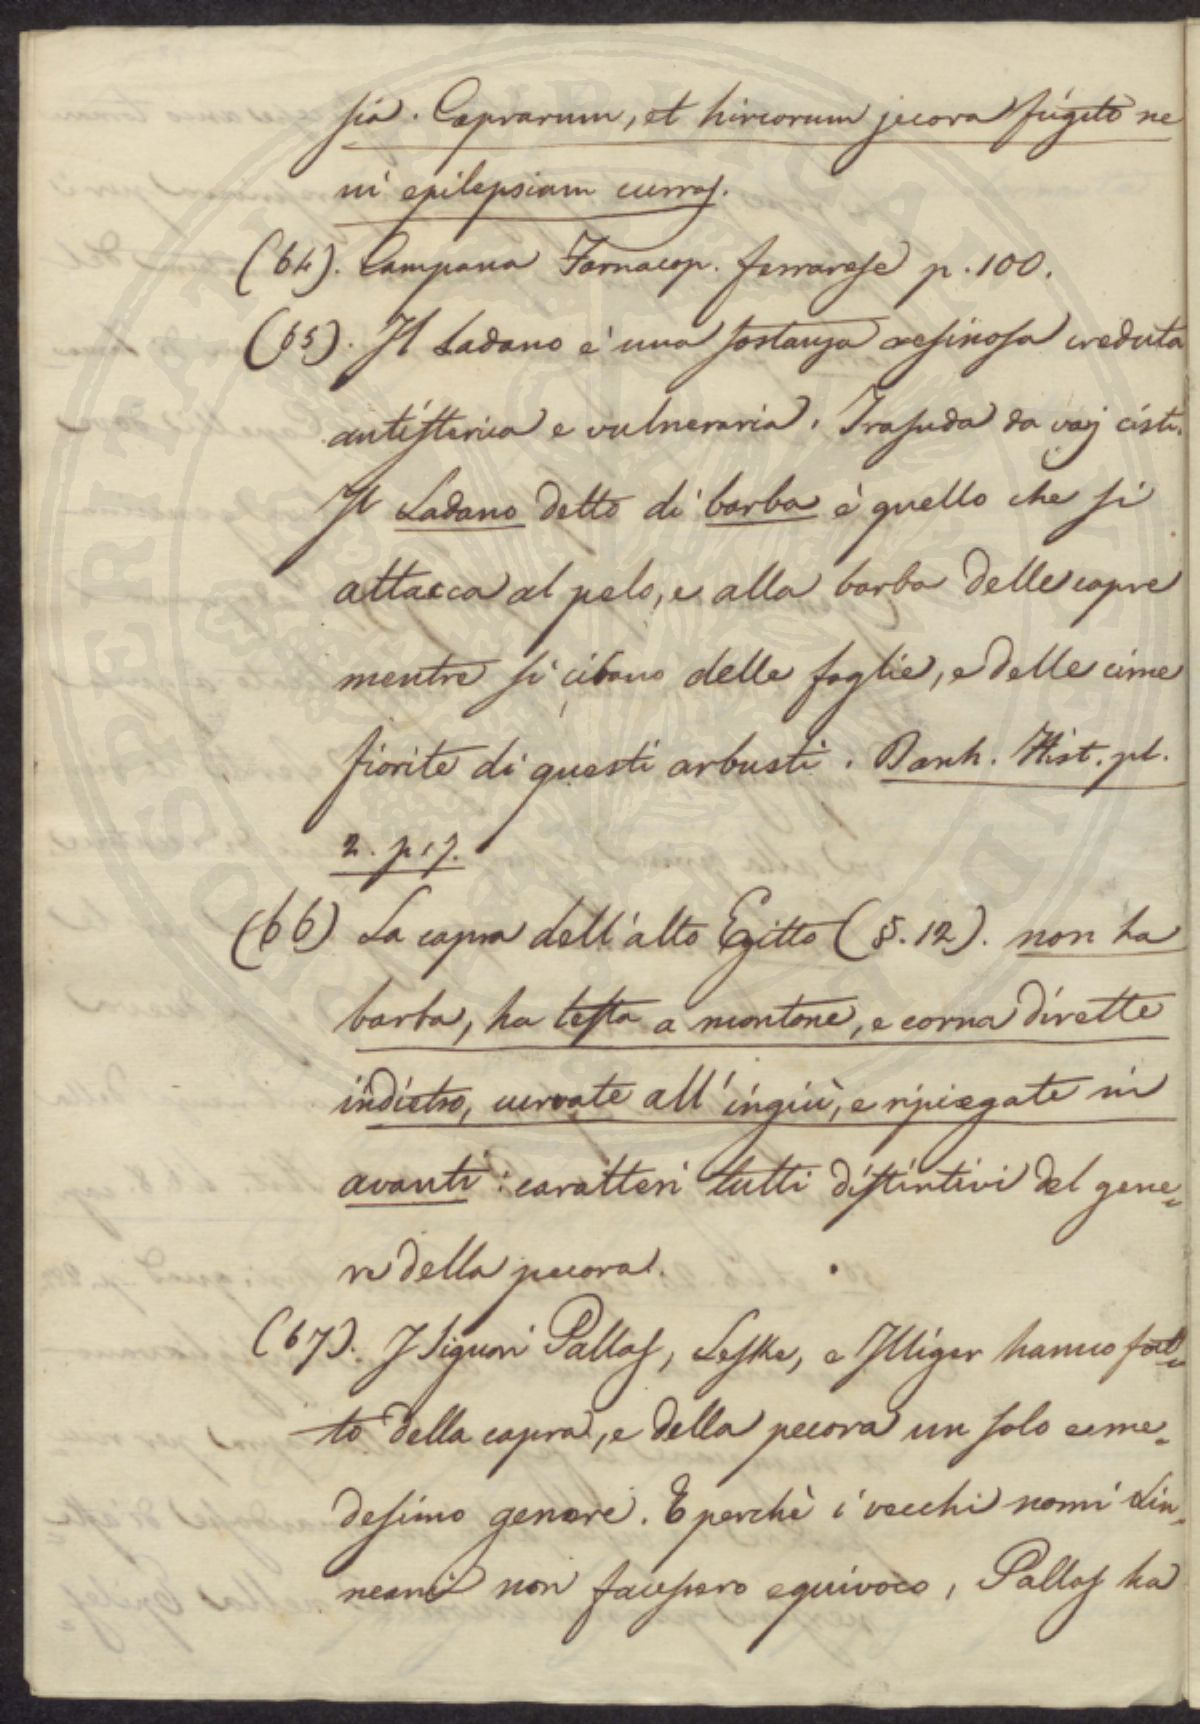 sia. Caprarum, et hircorum jecora fugito ne
ni epilepsiam curras.
(64). Campana Farnacop. ferrarese p. 100.
(65). Il Ladano è una sostanza resinosa creduta
antisterica e vulneraria. Trasuda da varj cisti.
Il Ladano detto di barba è quello che si
attacca al pelo, e alla barba delle capre
mentre si cibano delle foglie, e delle cime
fiorite di questi arbusti. Bauh. Hist. pl.
2. p.
(66) La capra dell'alto Egitto (§. 12). non ha
barba, ha testa a montone, e corna dirette
indietro, curvate all'ingiù, e ripiegate in
avanti: caratteri tutti distintivi del gene=
re della pecora.
(67). I Signori Pallas, Leske, e Illiger hanno fat=
to della capra, e della pecora un solo e me=
desimo genere. E perchè i vecchi nomi Lin=
neani non facessero equivoco, Pallas ha